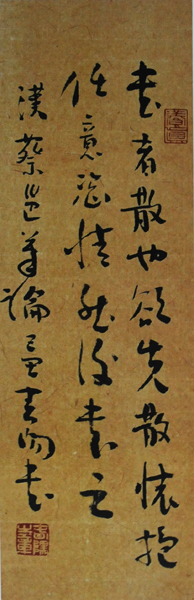 書者散也欲先散懷抱
任意恣情然後書之
漢蔡邕筆論